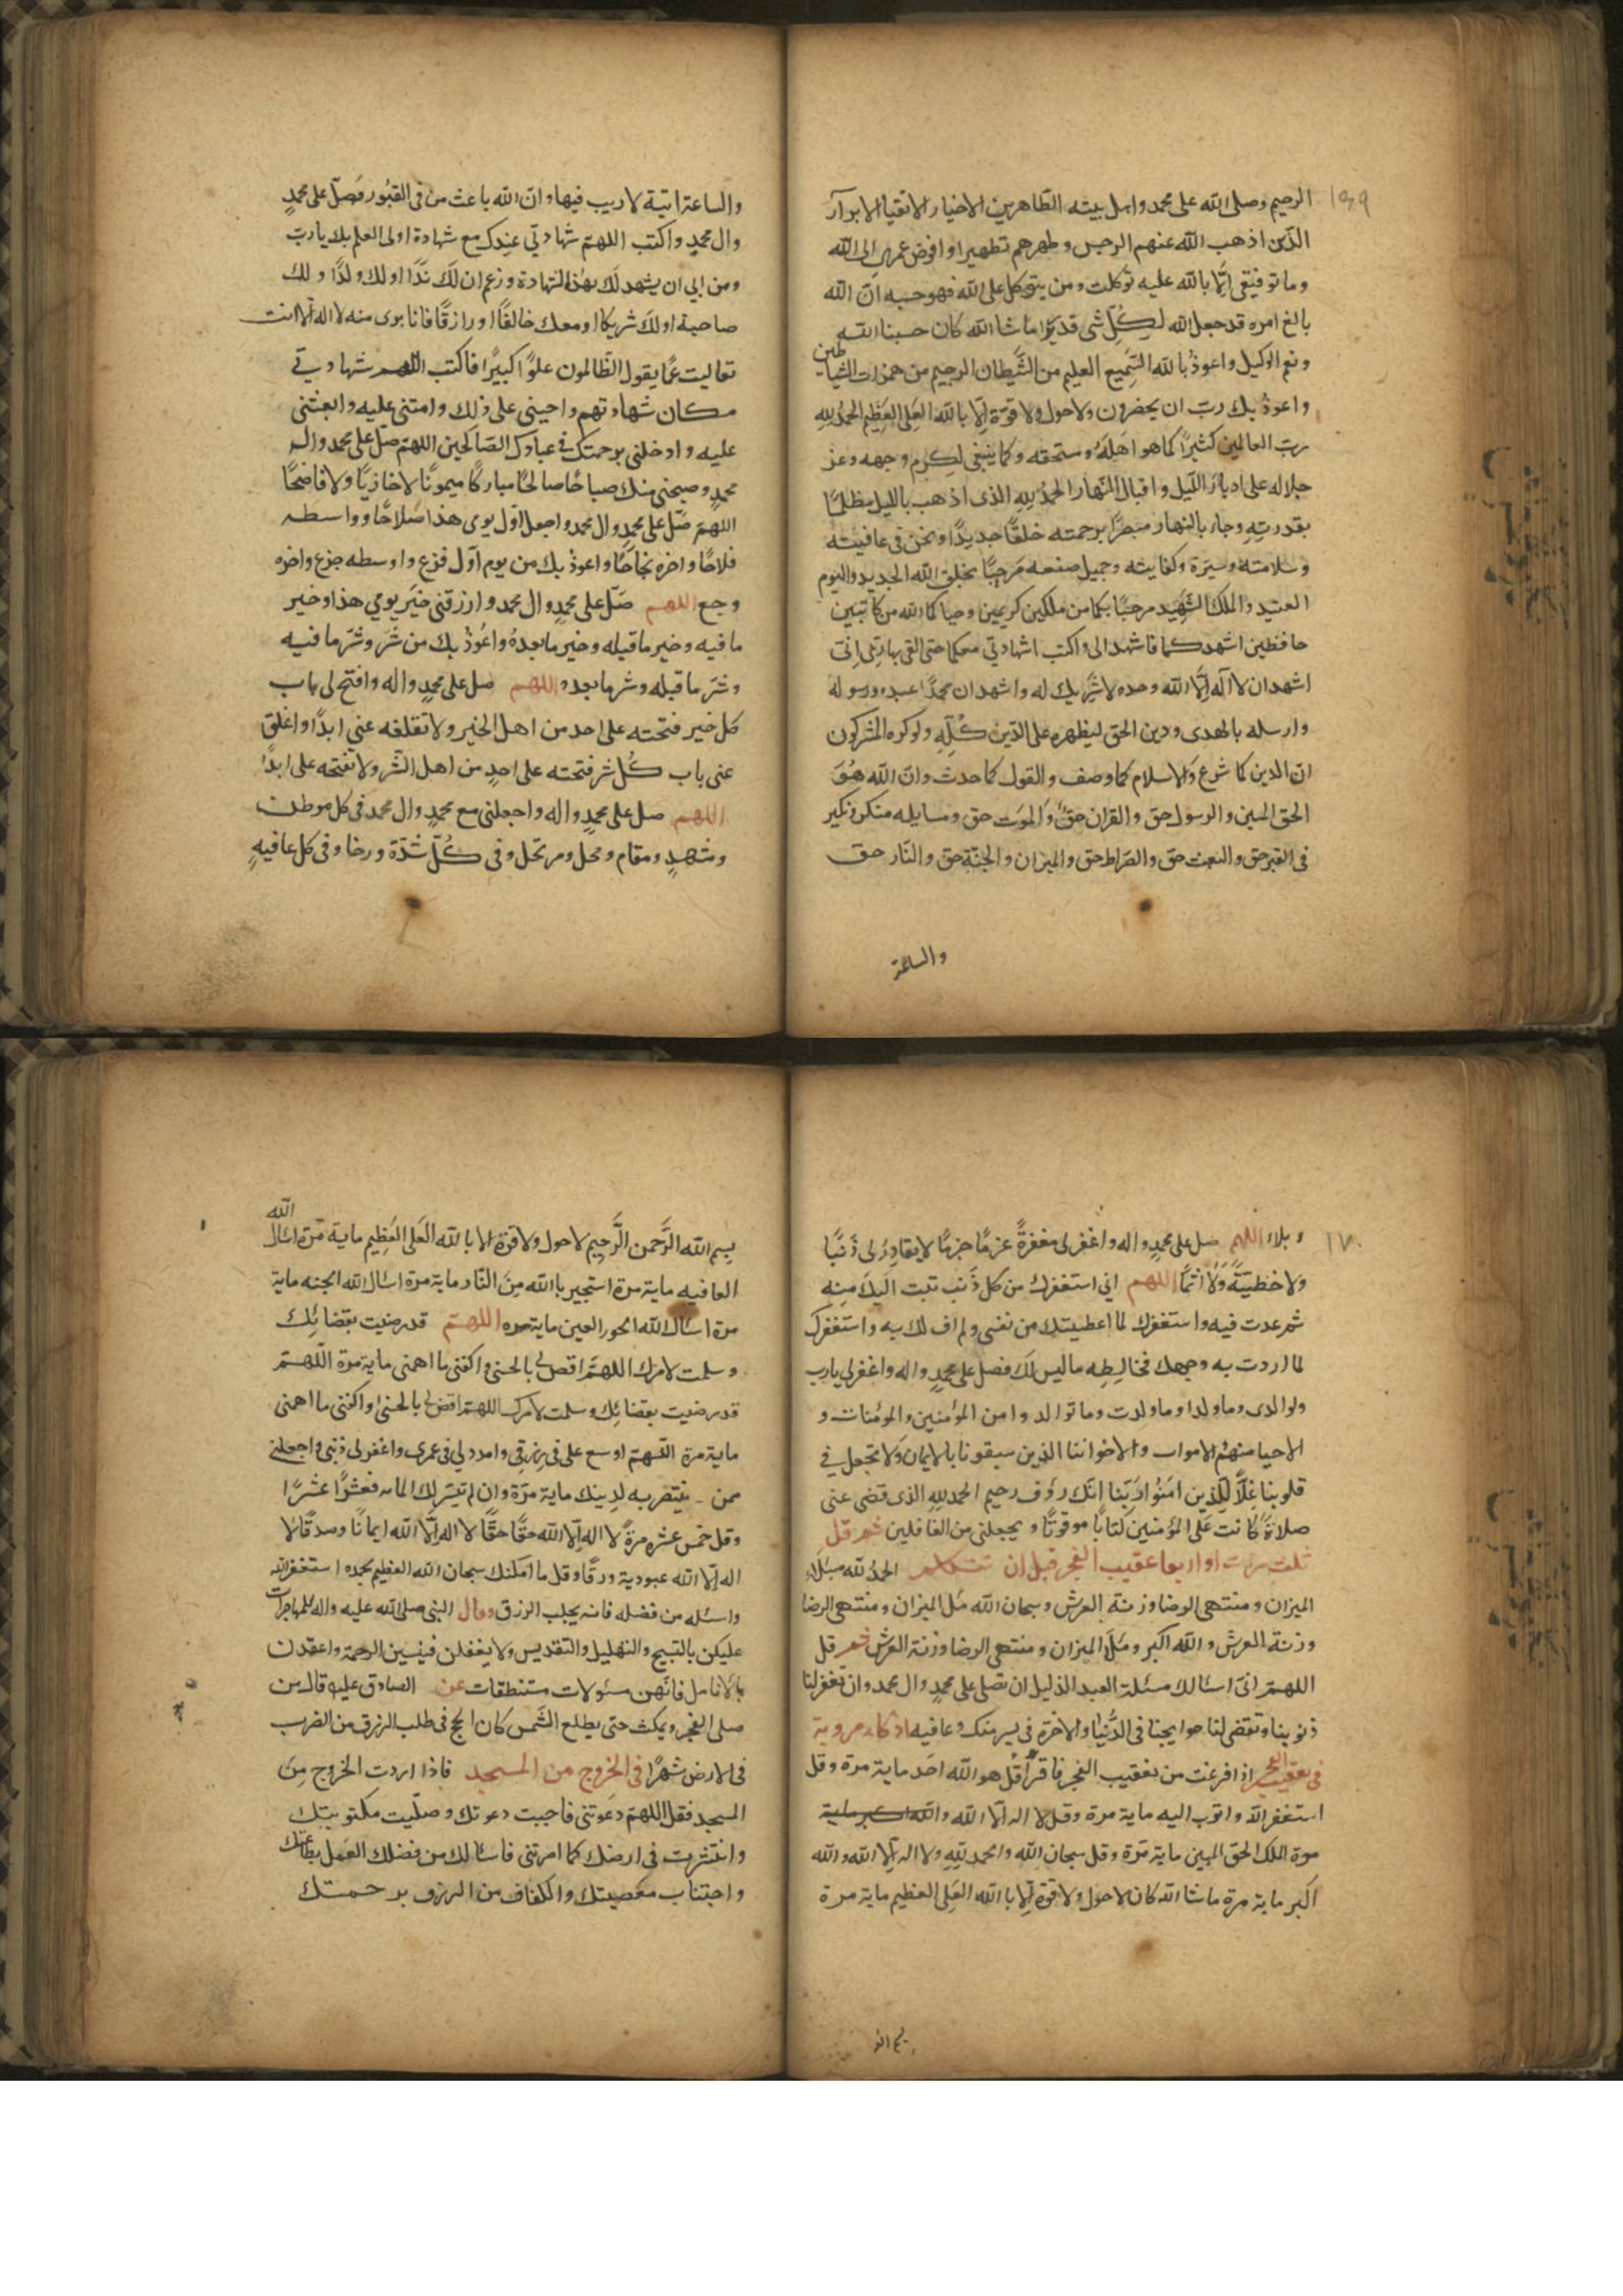 ١٦٩
الرحيم وصلى الله على محمد واهل بيته الطاهرين الاخيار الاتقيا الابرار
الذين اذهب الله عنهم الرجس وطهرهم تطهيرا وافوض امري الى الله
وما توفيقى الا بالله عليه توكلت ومن يتوكل على الله فهو حسبه ان الله
بالغ امره قد جعل الله لكل شى قدرا ما شا الله كان حسبنا الله
ونعم الوكيل واعوذ بالله السميع العليم من الشيطان الرجيم من همزات الشياطين
واعوذ بك رب ان يحضرون ولا حول ولا قوة الا بالله العلى العظيم الحمد لله
رب العالمين كثيرا كما هو اهله ومستحقه وكما ينبغى لكرم وجهه وعز
جلاله على ادبار الليل واقبال النهار الحمد لله الذى اذهب بالليل مظلما
بقدرته وجاء بالنهار مبصرا برحمته خلقا جديدا ونحن فى عافيته
وسلامته وستره وكفايته وجميل صنعه مرحبا بخلق الله الجديد واليوم
العتيد والملك الشهيد مرحبا بكما من ملكين كريمين وحياكما الله من كاتبين
حافظين اشهدكما فاشهدا لى واكتبا شهادتي معكما حتى القى بها ربى انى
اشهد ان لا اله الا الله وحده لا شريك له واشهد ان محمدا عبده ورسوله
وارسله بالهدى ودين الحق ليظهره على الدين كله ولو كره المشركون
ان الدين كما شرع والاسلام كما وصف والقول كما حدث وان الله هو
الحق المبين والرسول حق والقران حق والموت حق ومسايله منكر ونكير
فى القبر حق والبعث حق والصراط حق والميزان والجنة حق والنار حق
والساعة
والساعة اتية لا ريب فيها وان الله باعث من فى القبور فصل على محمد
وال محمد واكتب اللهم شهادتي عندك مع شهادة اولى العلم بك يا رب
ومن ابى ان يشهد لك بهذه الشهادة وزعم ان لك ندا او لك ولدا ولك
صاحبة او لك شريكا او معك خالقا او رازقا فانا برى منه لا اله الا انت
تعاليت عما يقول الظالمون علوا كبيرا فاكتب اللهم شهادتي
مكان شهادتهم واحيني على ذلك وامتنى عليه وابعثنى
عليه وادخلنى برحمتك فى عبادك الصالحين اللهم صل على محمد وال
محمد وصبحنى منك صباحا صالحا مباركا ميمونا لا خازيا ولا فاضحا
اللهم صل على محمد وال محمد واجعل اول يومى هذا صلاحا وواسطه
فلاحا واخره نجاحا واعوذ بك من يوم اول فزع واوسطه جزع واخره
وجع اللهم صل على محمد وال محمد وارزقنى خير يومي هذا وخير
ما فيه وخير ما قبله وخير ما بعده واعوذ بك من شر وشر ما فيه
وشر ما قبله وشر ما بعده اللهم صل على محمد واله وافتح لى باب
كل خير فتحته على احد من اهل الخير ولا تغلقه عنى ابدا واغلق
عنى باب كل شر فتحته على احد من اهل الشر ولا تفتحه على ابدا
اللهم صل على محمد واله واجعلنى مع محمد وال محمد فى كل موطن
ومشهد ومقام ومحل ومرتحل وفى كل شدة ورخا وفى كل عافية
١٧٠
وبلاء اللهم صل على محمد واله واغفر لى مغفرة عزما جزما لا يغادر لى ذنبا
ولا خطيئة ولا اثما اللهم انى استغفرك من كل ذنب تبت اليك منه
ثم عدت فيه واستغفرك لما اعطيتك من نفسى ولم اف لك به واستغفرك
لما اردت به وجهك فخالطه ما ليس لك فصل على محمد واله واغفر لى يا رب
ولوالدى وما ولدا وما ولدت وما توالدوا من المؤمنين والمؤمنات و
الاحيا منهم الاموات والاخواننا الذين سبقونا بالايمان ولا تجعل في
قلوبنا غلا للذين امنوا ربنا انك رؤف رحيم الحمد لله الذى قضى عنى
صلاة كانت على المؤمنين كتابا موقوتا ولم يجعلنى من الغافلين ثم قل
ثلث مرات او اربعا عقيب الفجر قبل ان تتكلم الحمد لله ملاء
الميزان ومنتهى الرضا وزنة العرش وسبحان الله ملء الميزان ومنتهى الرضا
وزنة العرش والله اكبر وملء الميزان ومنتهى الرضا وزنة العرش ثم قل
اللهم انى اسالك مسئلة العبد الذليل ان تصلى على محمد وال محمد وان تغفر لنا
ذنوبنا وتقضى لنا حوايجنا فى الدنيا والاخرة فى يسر منك وعافيه اذكار مروية
فى تعقيب الفجر اذا فرغت من تعقيب الفجر فاقرا قل هو الله احد ماية مرة وقل
استغفر الله واتوب اليه ماية مرة وقل لا اله الا الله والله اكبر ماية
مرة الملك الحق المبين ماية مرة وقل سبحان الله والحمد لله ولا اله الا الله والله
اكبر ماية مرة ما شا الله كان لا حول ولا قوة الا بالله العلى العظيم ماية مرة
بسم الله الرحمن الرحيم لا حول ولا قوة الا بالله العلى العظيم ماية مرة اسال الله
العافيه ماية مرة استجير بالله من النار ماية مرة اسال الله الجنه ماية
مرة اسال الله الحور العين ماية مره اللهم قد رضيت بقضائك
وسلمت لامرك اللهم اقض لى بالحسنى واكفنى ما اهمنى ماية مرة اللهم
قد رضيت بقضائك وسلمت لامرك اللهم اقض لى بالحسنى واكفنى ما اهمنى
ماية مرة اللهم اوسع على فى رزقي وامدد لي فى عمرى واغفر لى ذنبى واجعلنى
ممن تنتصر به لدينك ماية مرة وان لم تيسر لك الماية فعشرا عشرا
وقل خمس عشره مرة لا اله الا الله حقا حقا لا اله الا الله ايمانا وصدقا لا
اله الا الله عبودية ورقا وقل ما امكنك سبحان الله العظيم بحمده استغفر الله
واسئله من فضله فانه يجلب الرزق وقال النبى صلى الله عليه واله للمهاجرات
عليكن بالتسبيح والتهليل والتقديس ولا يغفلن فينسين الرحمة واعقدن
بالانامل فانهن مسئولات مستنطقات عن الصادق عليه قال من
صلى الفجر ويمكث حتى يطلع الشمس كان انجح فى طلب الرزق من الضرب
فى الارض شهرا فى الخروج من المسجد فاذا اردت الخروج من
المسجد فقل اللهم دعوتنى فاجبت دعوتك وصليت مكتوبتك
وانتشرت فى ارضك كما امرتنى فاسالك من فضلك العمل بطاعتك
واجتناب معصيتك والكفاف من الرزق برحمتك